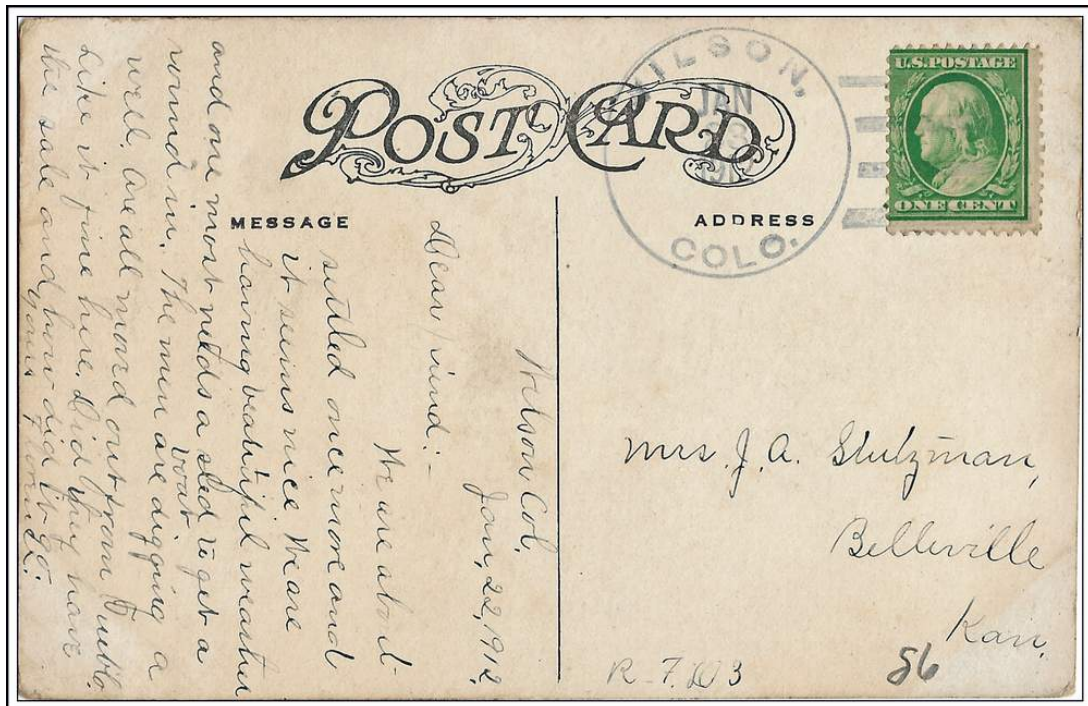 POST CARD
MESSAGE
ADDRESS
WILSON.
JAN
COLO.
U.S. POSTAGE
ONE CENT
Wilson Col.
Jan, 22, 1912.
Dear friend:-
We are about
settled once more and
it seems nice We are
having beatiful weather
and one most needs a sled or boat to get a
round in. The men are digging a
well. Are all moved out from Pueblo.
Like it fine here. Did they have
the sale and how did it go.
Yours
Mrs. J. A. Stutzman,
Belleville
Kan.
R-7.
86